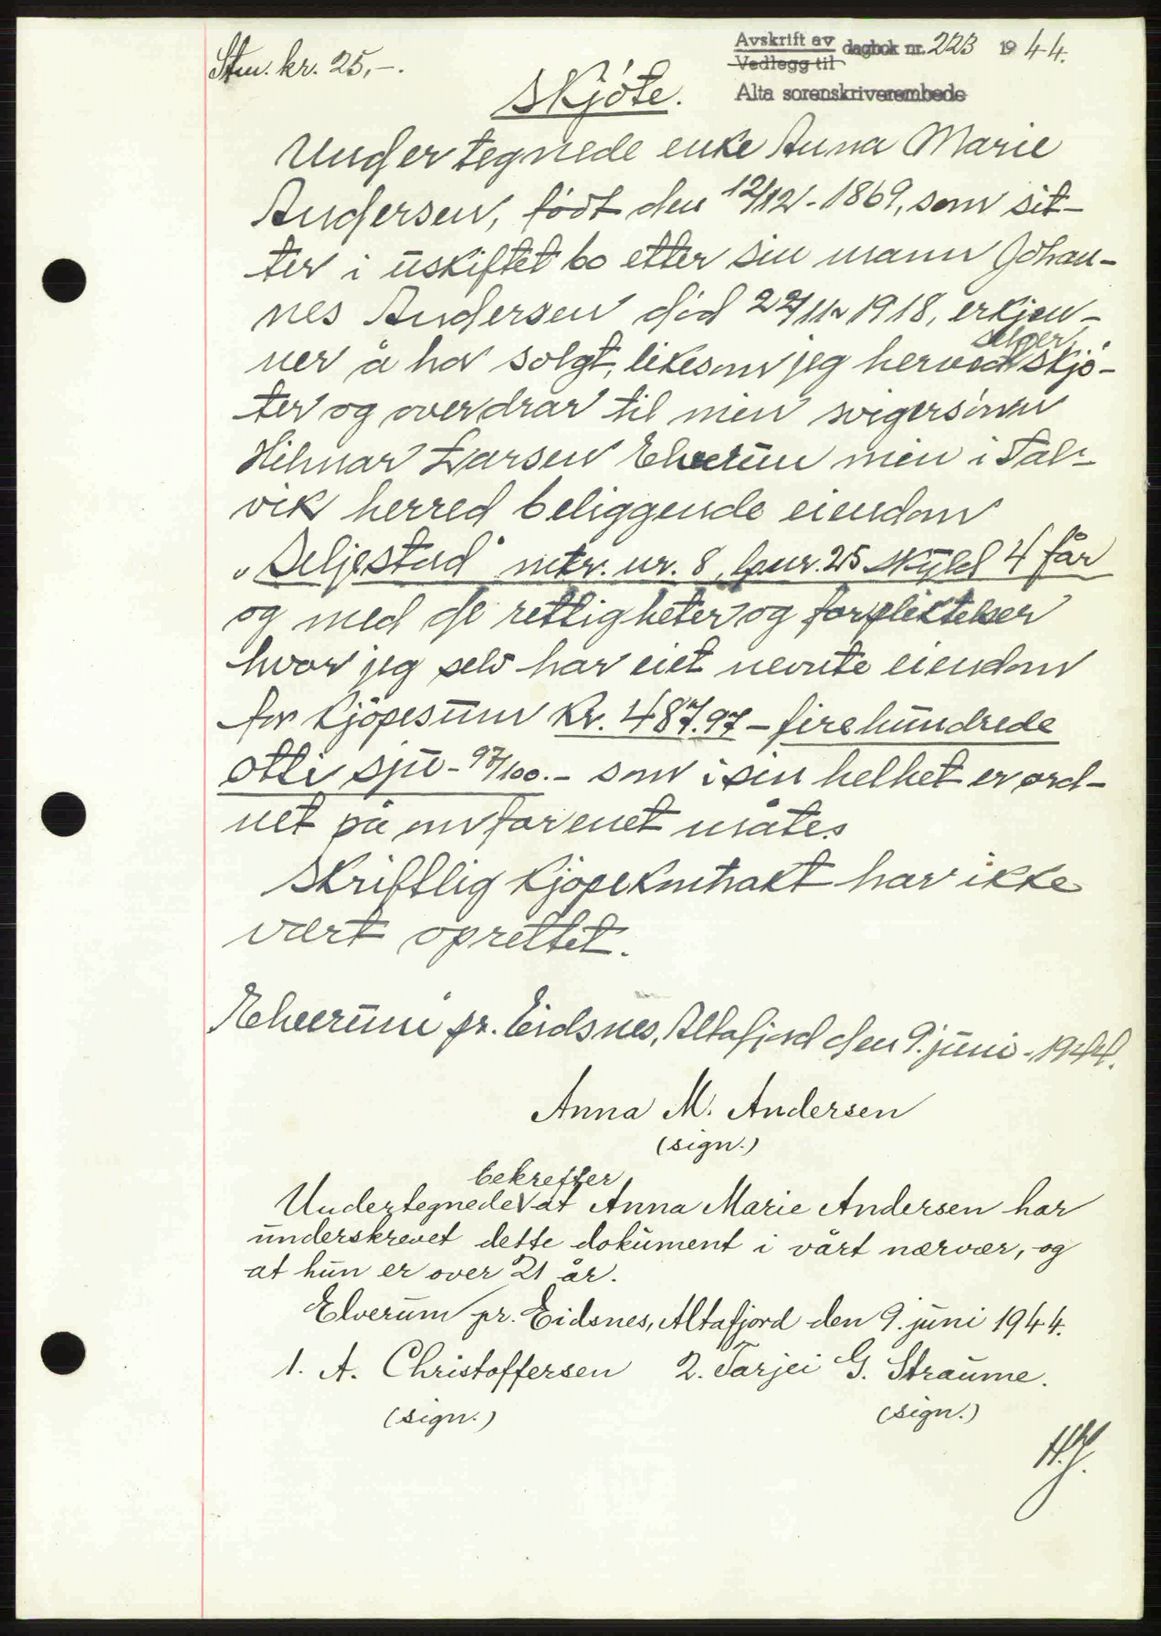 Stm. kr. 25,-.
Avskrift av dagbok nr. 223 1944.
Vedlegg til
Alta sorenskriverembede
Skjöte.
Undertegnede enke Anna Marie
Andersen, födt den 12/12-1869, som sit-
ter i uskiftet bo etter sin mann Johan-
nes Andersen död 22/11 1918, erkjen-
ner å ha solgt, likesom jeg herved selger, skjö-
ter og overdrar til min svigersönn
Hilmar Larsen Elverum min i Tal-
vik herred beliggende eiendom
„Seljestad" mtr. nr. 8, bnr. 25 skyld 4 får
og med de rettigheter og forpliktelser
hvor jeg selv har eiet nevnte eiendom
for kjöpesum Kr. 487.97 - firehundrede
otti sju - 97/100.- som i sin helhet er ord-
net på omforenet måte.
Skriftlig kjöpekontrakt har ikke
vært oprettet.
Elverum pr. Eidsnes, Altafjord den 9. juni - 1944.
Anna M. Andersen
(sign.)
Undertegnede bekrefter at Anna Marie Andersen har
underskrevet dette dokument i vårt nærvær, og
at hun er over 21 år.
Elverum pr. Eidsnes, Altafjord den 9. juni 1944.
1. A. Christoffersen 2. Tarjei G. Straume.
(sign.) (sign.)